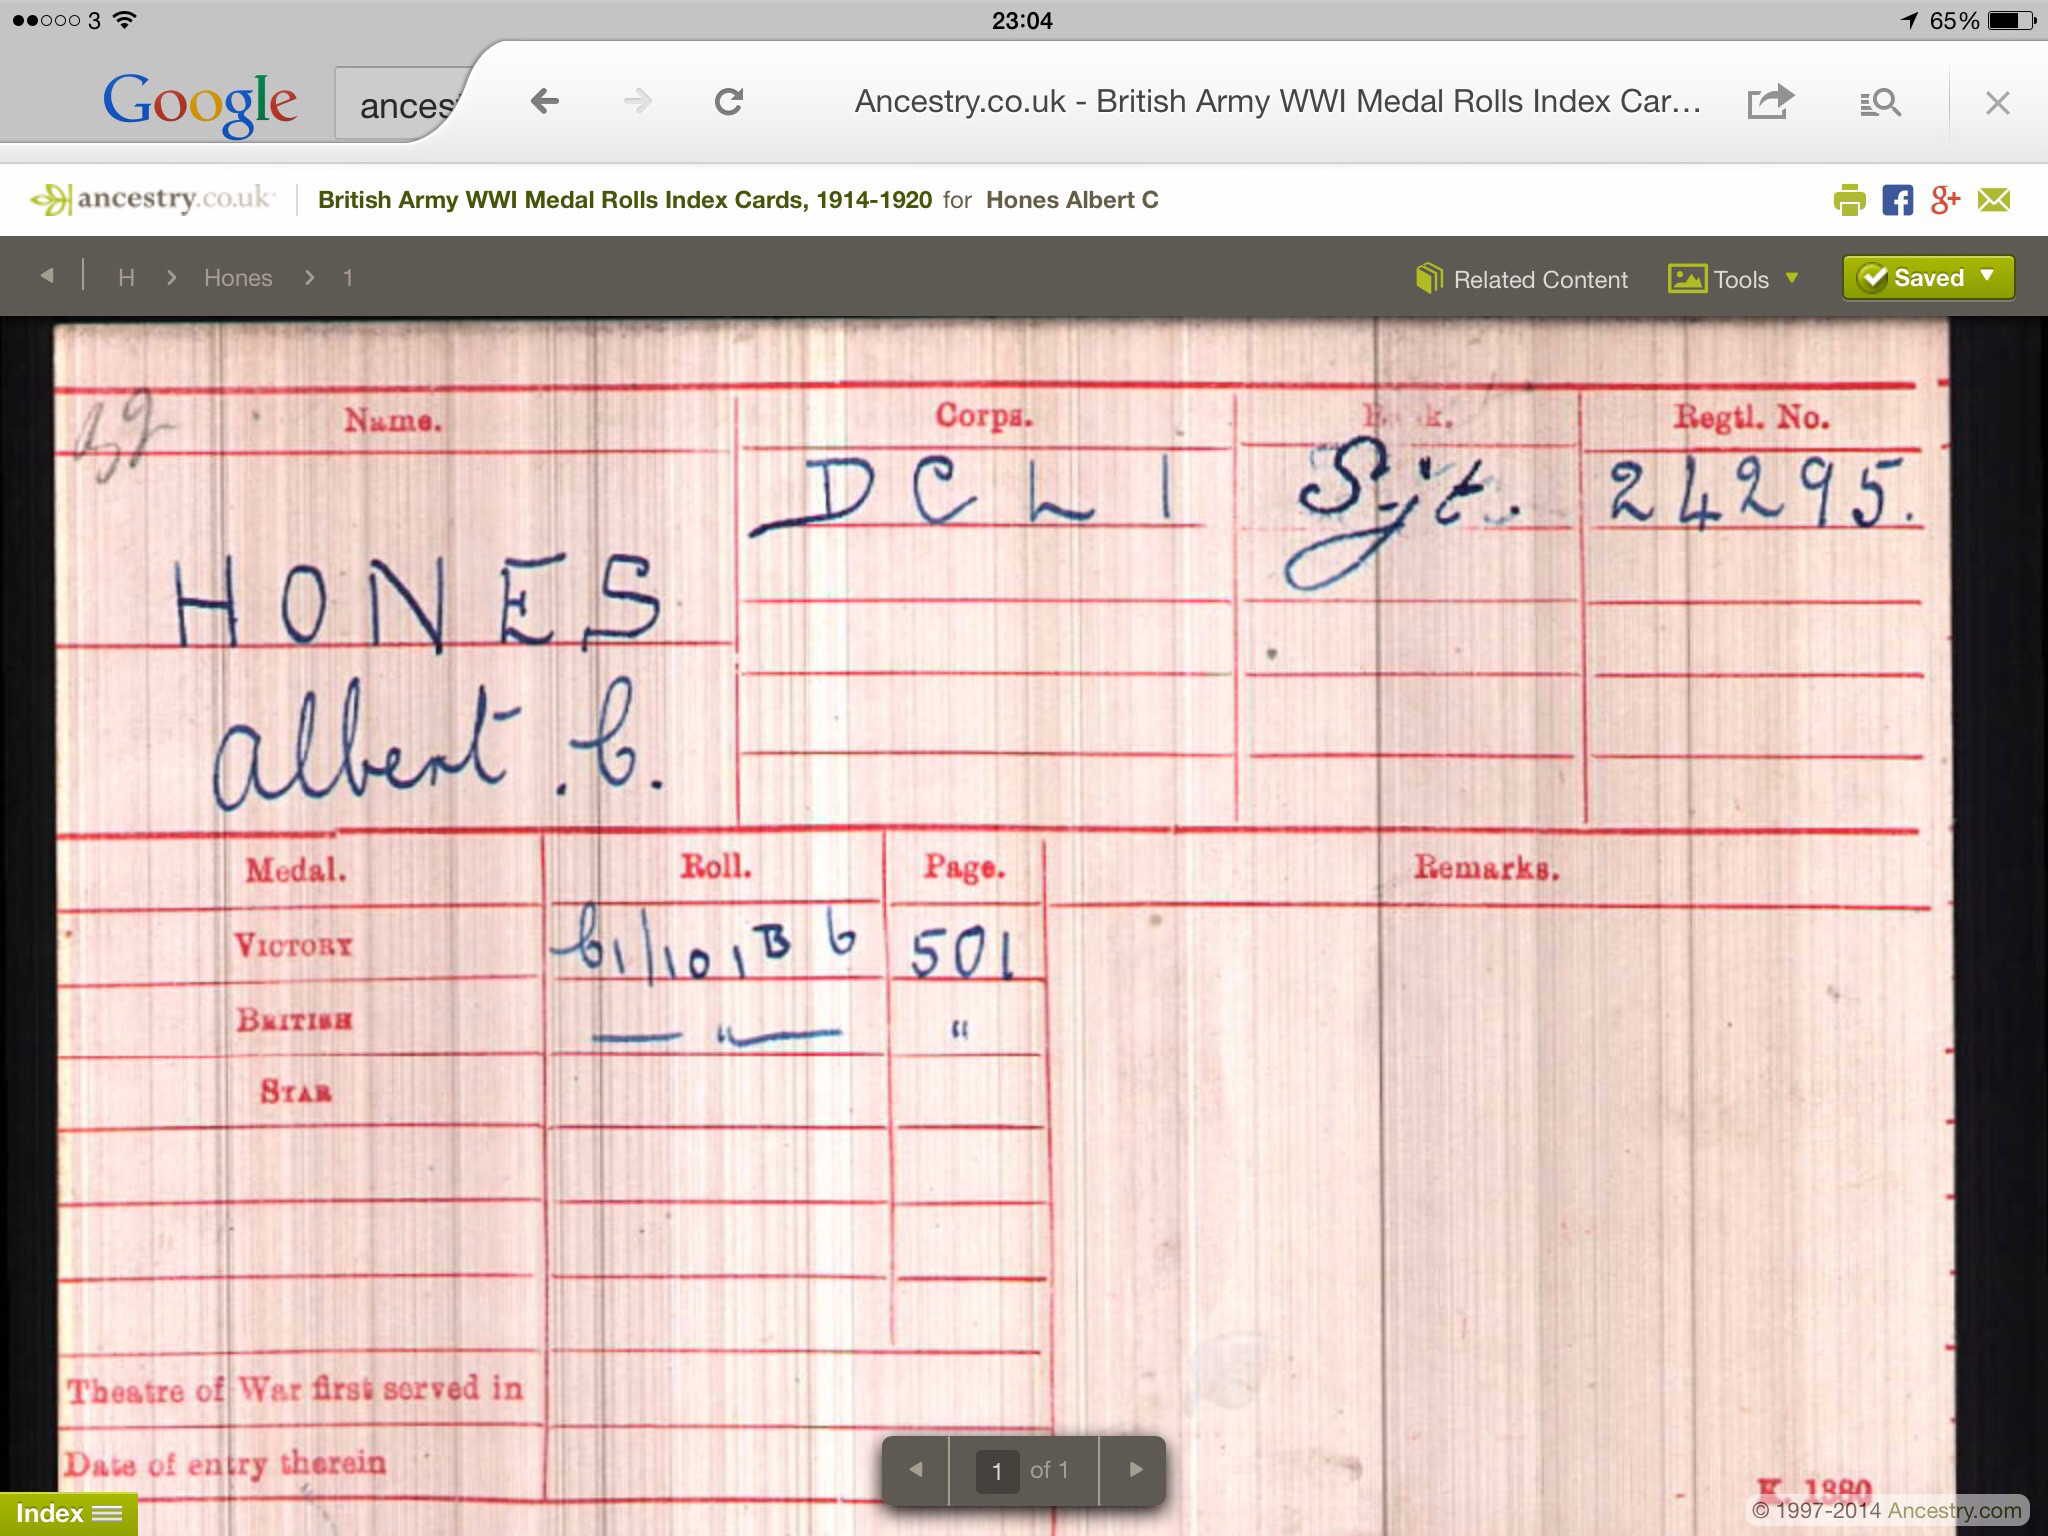 3 23:04 65%
Google ances Ancestry.co.uk - British Army WWI Medal Rolls Index Car...
ancestry.co.uk British Army WWI Medal Rolls Index Cards, 1914-1920 for Hones Albert C
H > Hones > 1 Related Content Tools Saved
Name. Corps. Regtl. No.
D C L I Sjt. 24295.
HONES
Albert . C.
Medal. Roll. Page. Remarks.
VICTORY C1/101 B 6 501
BRITISH — " — "
STAR
Theatre of War first served in
Date of entry therein
1 of 1
K. 1380
Index © 1997-2014 Ancestry.com